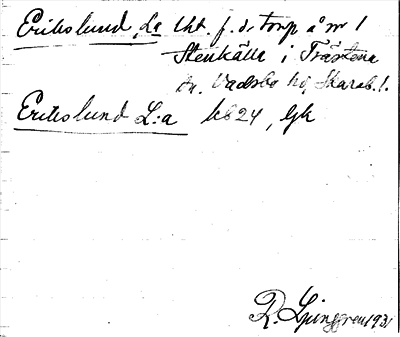 Erikslund, L:a lht. f.d. torp å nr 1
Stenkälla i Trästena
sn. Vadsbo hd, Skarab. l.
Erikslund L:a 1824, Gk
R. Ljunggren 1931